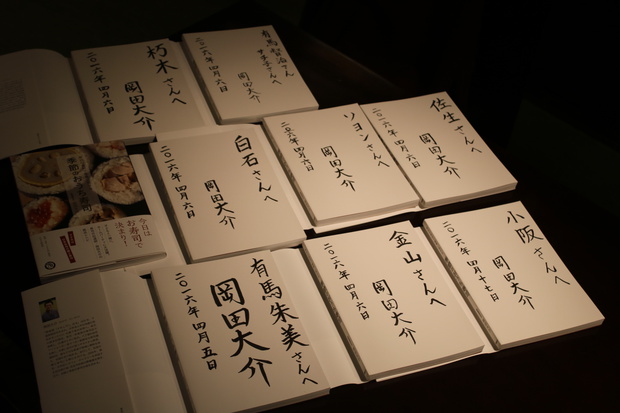 朽木さんへ
岡田大介
二〇一六年四月六日
有馬賢治さん
サチ子さんへ
岡田大介
二〇一六年四月六日
白石さんへ
岡田大介
二〇一六年四月六日
ソヨンさんへ
岡田大介
二〇一六年四月六日
佐生さんへ
岡田大介
二〇一六年四月六日
季節のおうち寿司
今日は
お寿司で
決まり!
有馬朱美さんへ
岡田大介
二〇一六年四月五日
金山さんへ
岡田大介
二〇一六年四月六日
小阪さんへ
岡田大介
二〇一六年四月十七日